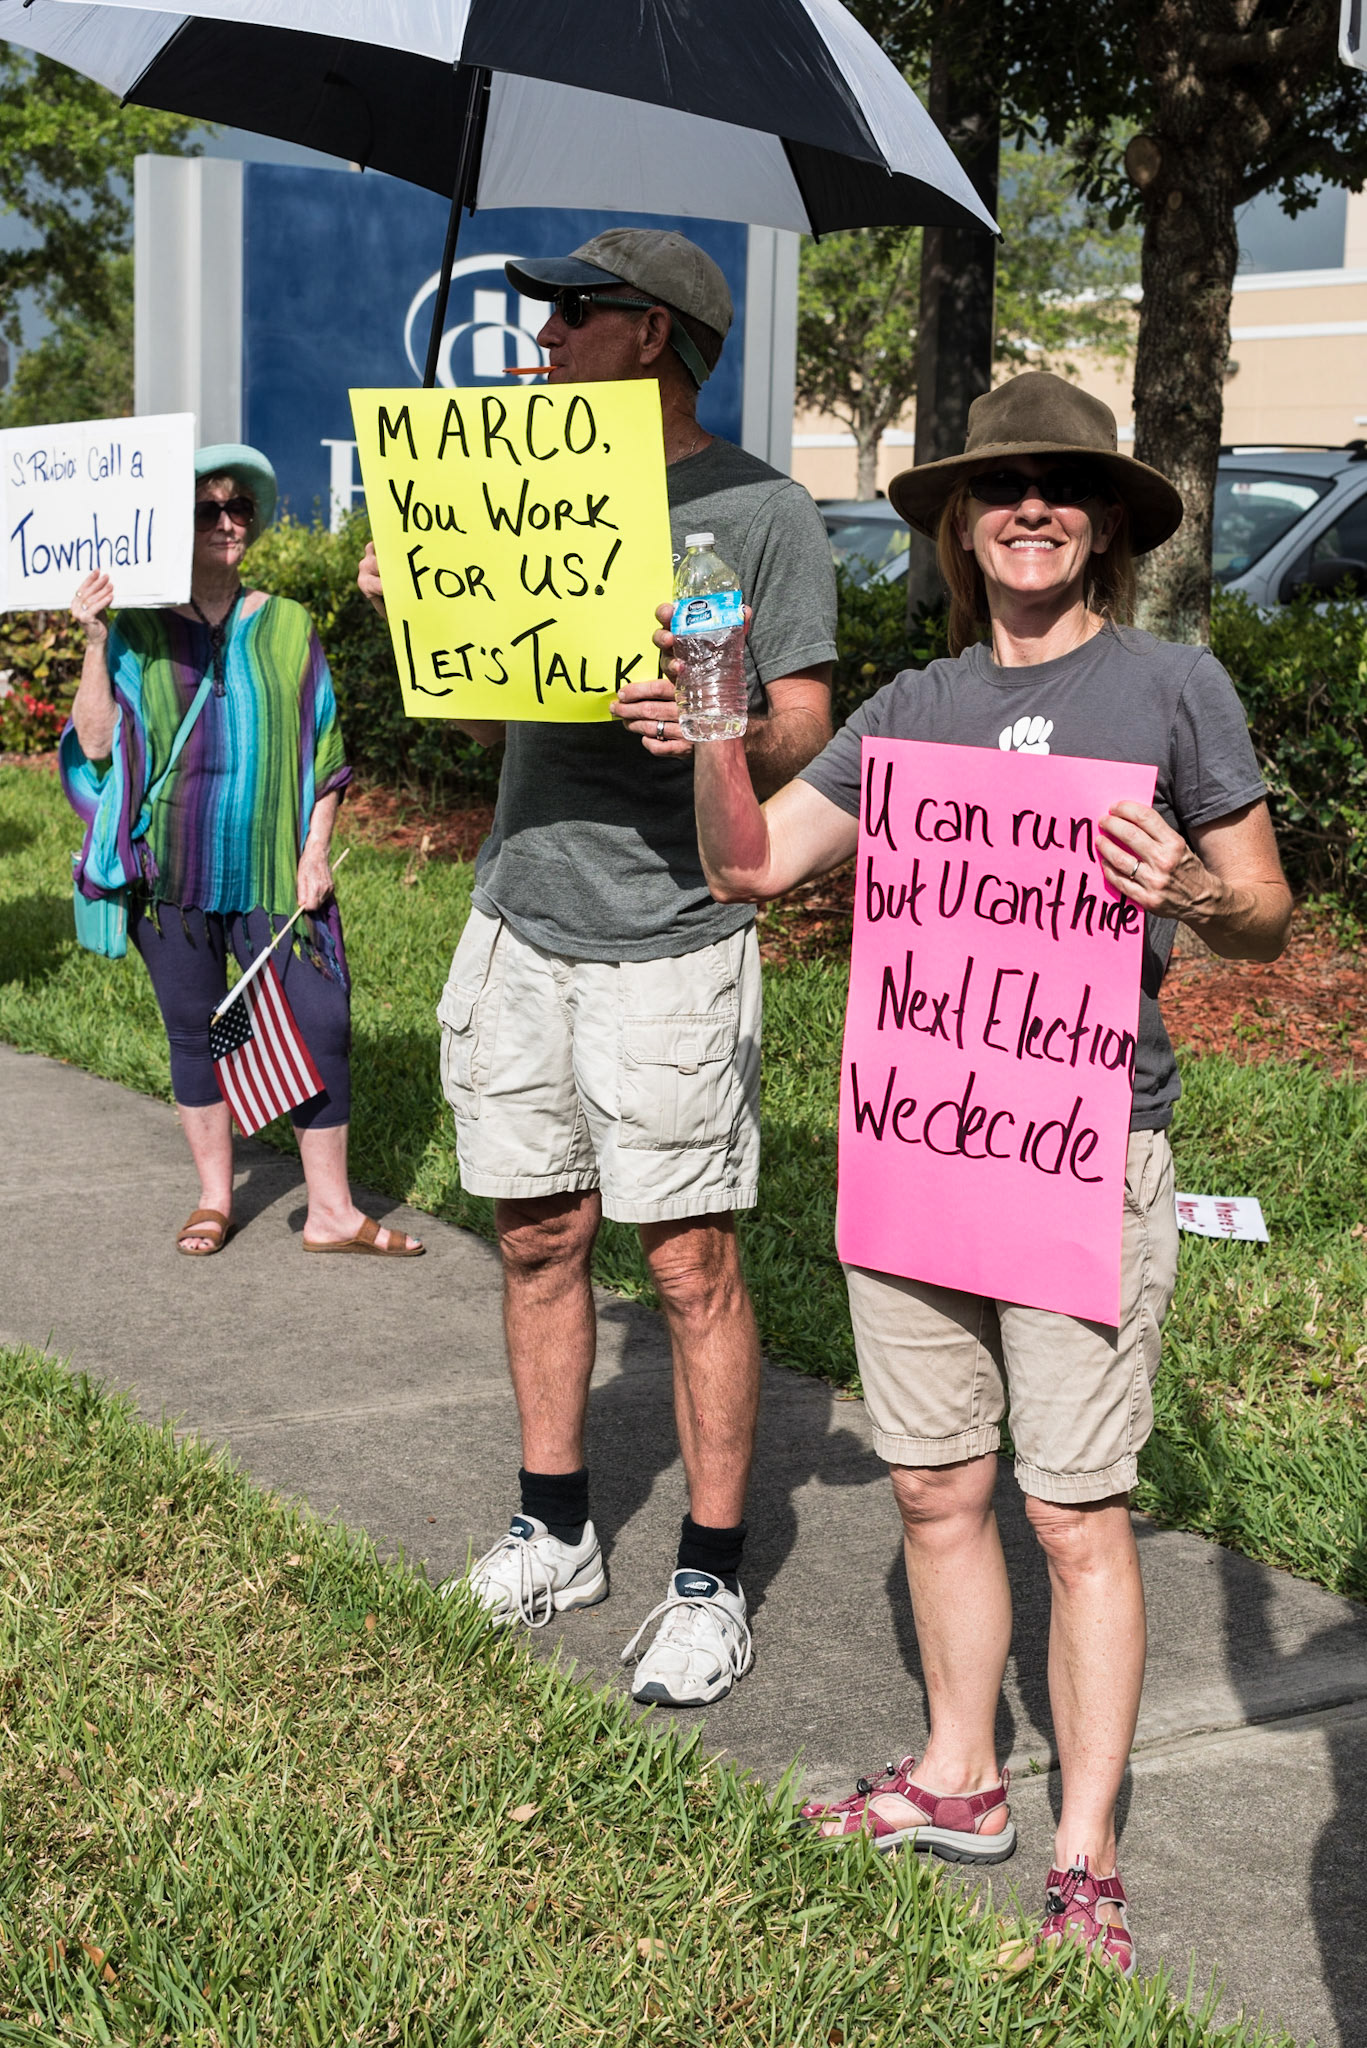 S. Rubio: Call a
Townhall
MARCO,
YOU WORK
FOR US!
LET'S TALK
U can run
but U can't hide
Next Election
We decide
Nestle
Pure Life
H
Where's